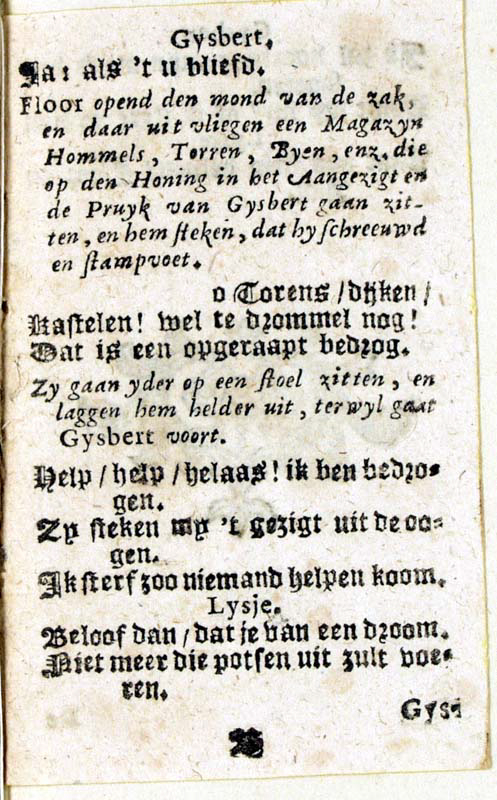 Gysbert.
Ja: als 't u bliefd.
Floor opend den mond van de zak,
en daar uit vliegen een Magazyn
Hommels, Torren, Byen, enz. die
op den Honing in het Aangezigt en
de Pruyk van Gysbert gaan zit-
ten, en hem steken, dat hy schreeuwd
en stampvoet.
o Torens / dijken /
Kastelen! wel te drommel nog!
Dat is een opgeraapt bedrog.
Zy gaan yder op een stoel zitten, en
laggen hem helder uit, terwyl gaat
Gysbert voort.
Help / help / helaas! ik ben bedro-
gen.
Zy steken my 't gezigt uit de oo-
gen.
Ik sterf zoo niemand helpen koom.
Lysje.
Beloof dan / dat je van een droom.
Niet meer die potsen uit zult voe-
ren.
Gys-